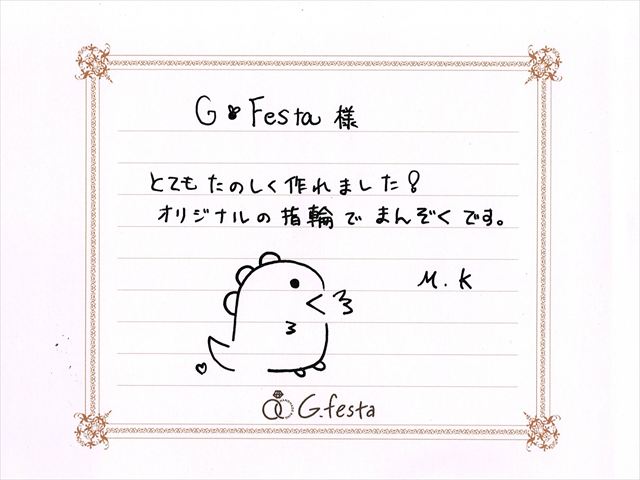 G・Festa 様
とても たのしく 作れました!
オリジナルの指輪で まんぞくです。
M.K
G.festa